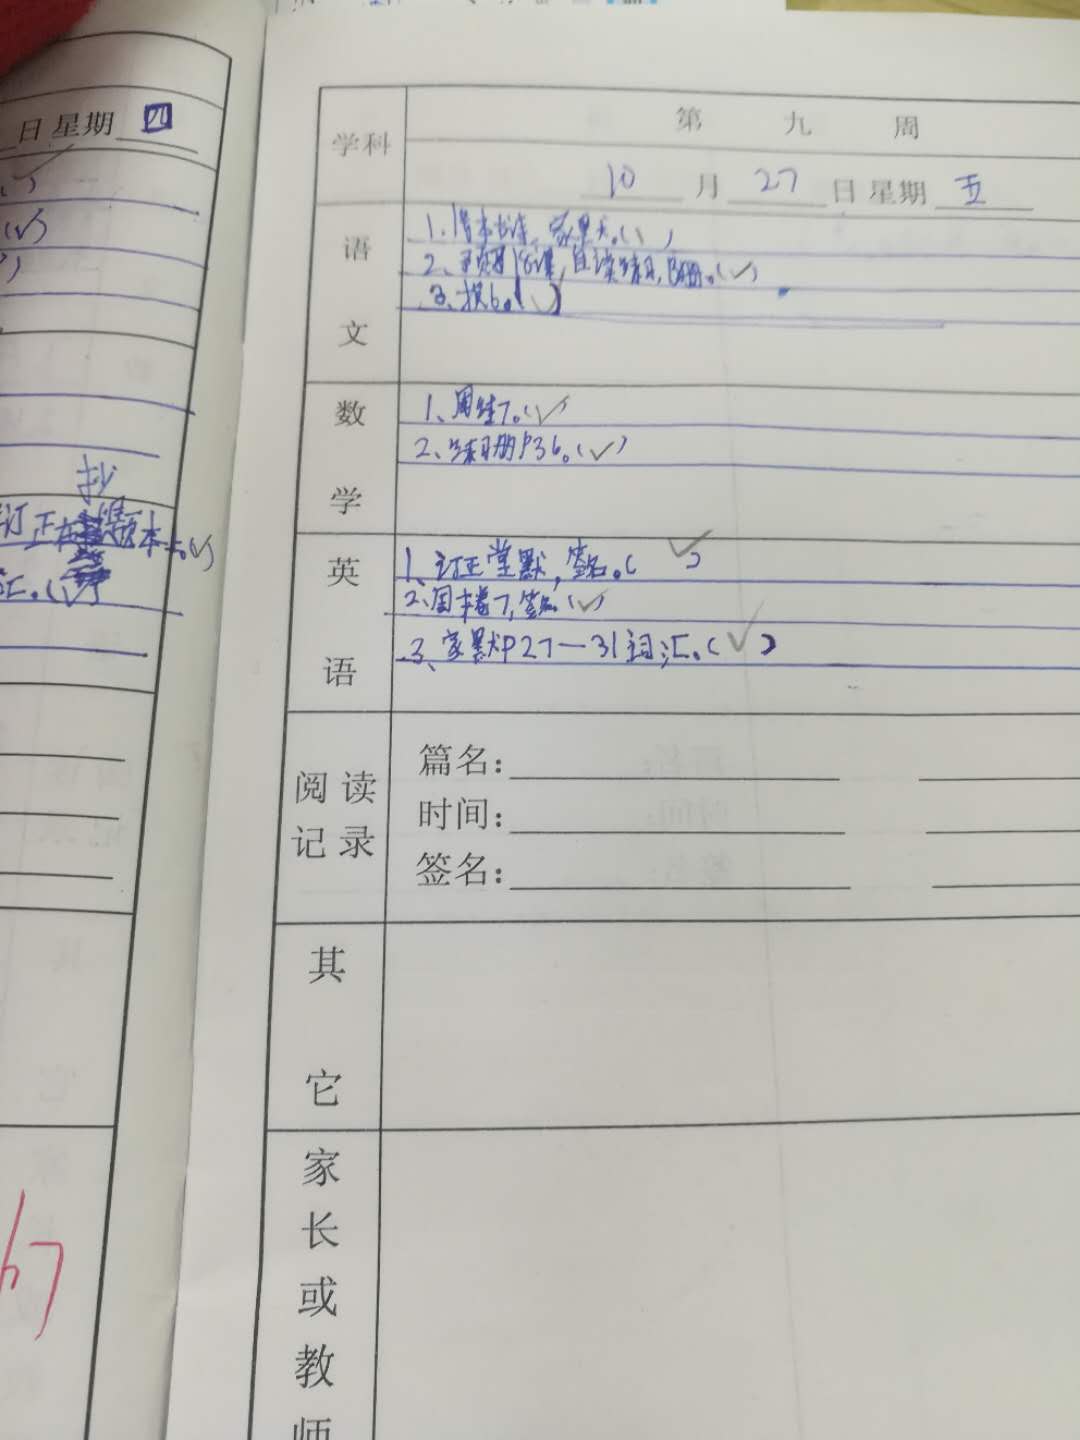 日 星期 四
抄
订正在错题本上(√)
汇。(√)
67
学科
第 九 周
10 月 27 日 星期 五
语文
1、
2、预习18课,自读练习,B册。(√)
3、报6。(√)
数学
1、周练7。(√)
2、练习册P36。(√)
英语
1、订正堂默,签名。(√)
2、周末卷7,签名。(√)
3、家默P27—31词汇。(√)
阅读记录
篇名:
时间:
签名:
其它
家长或教师